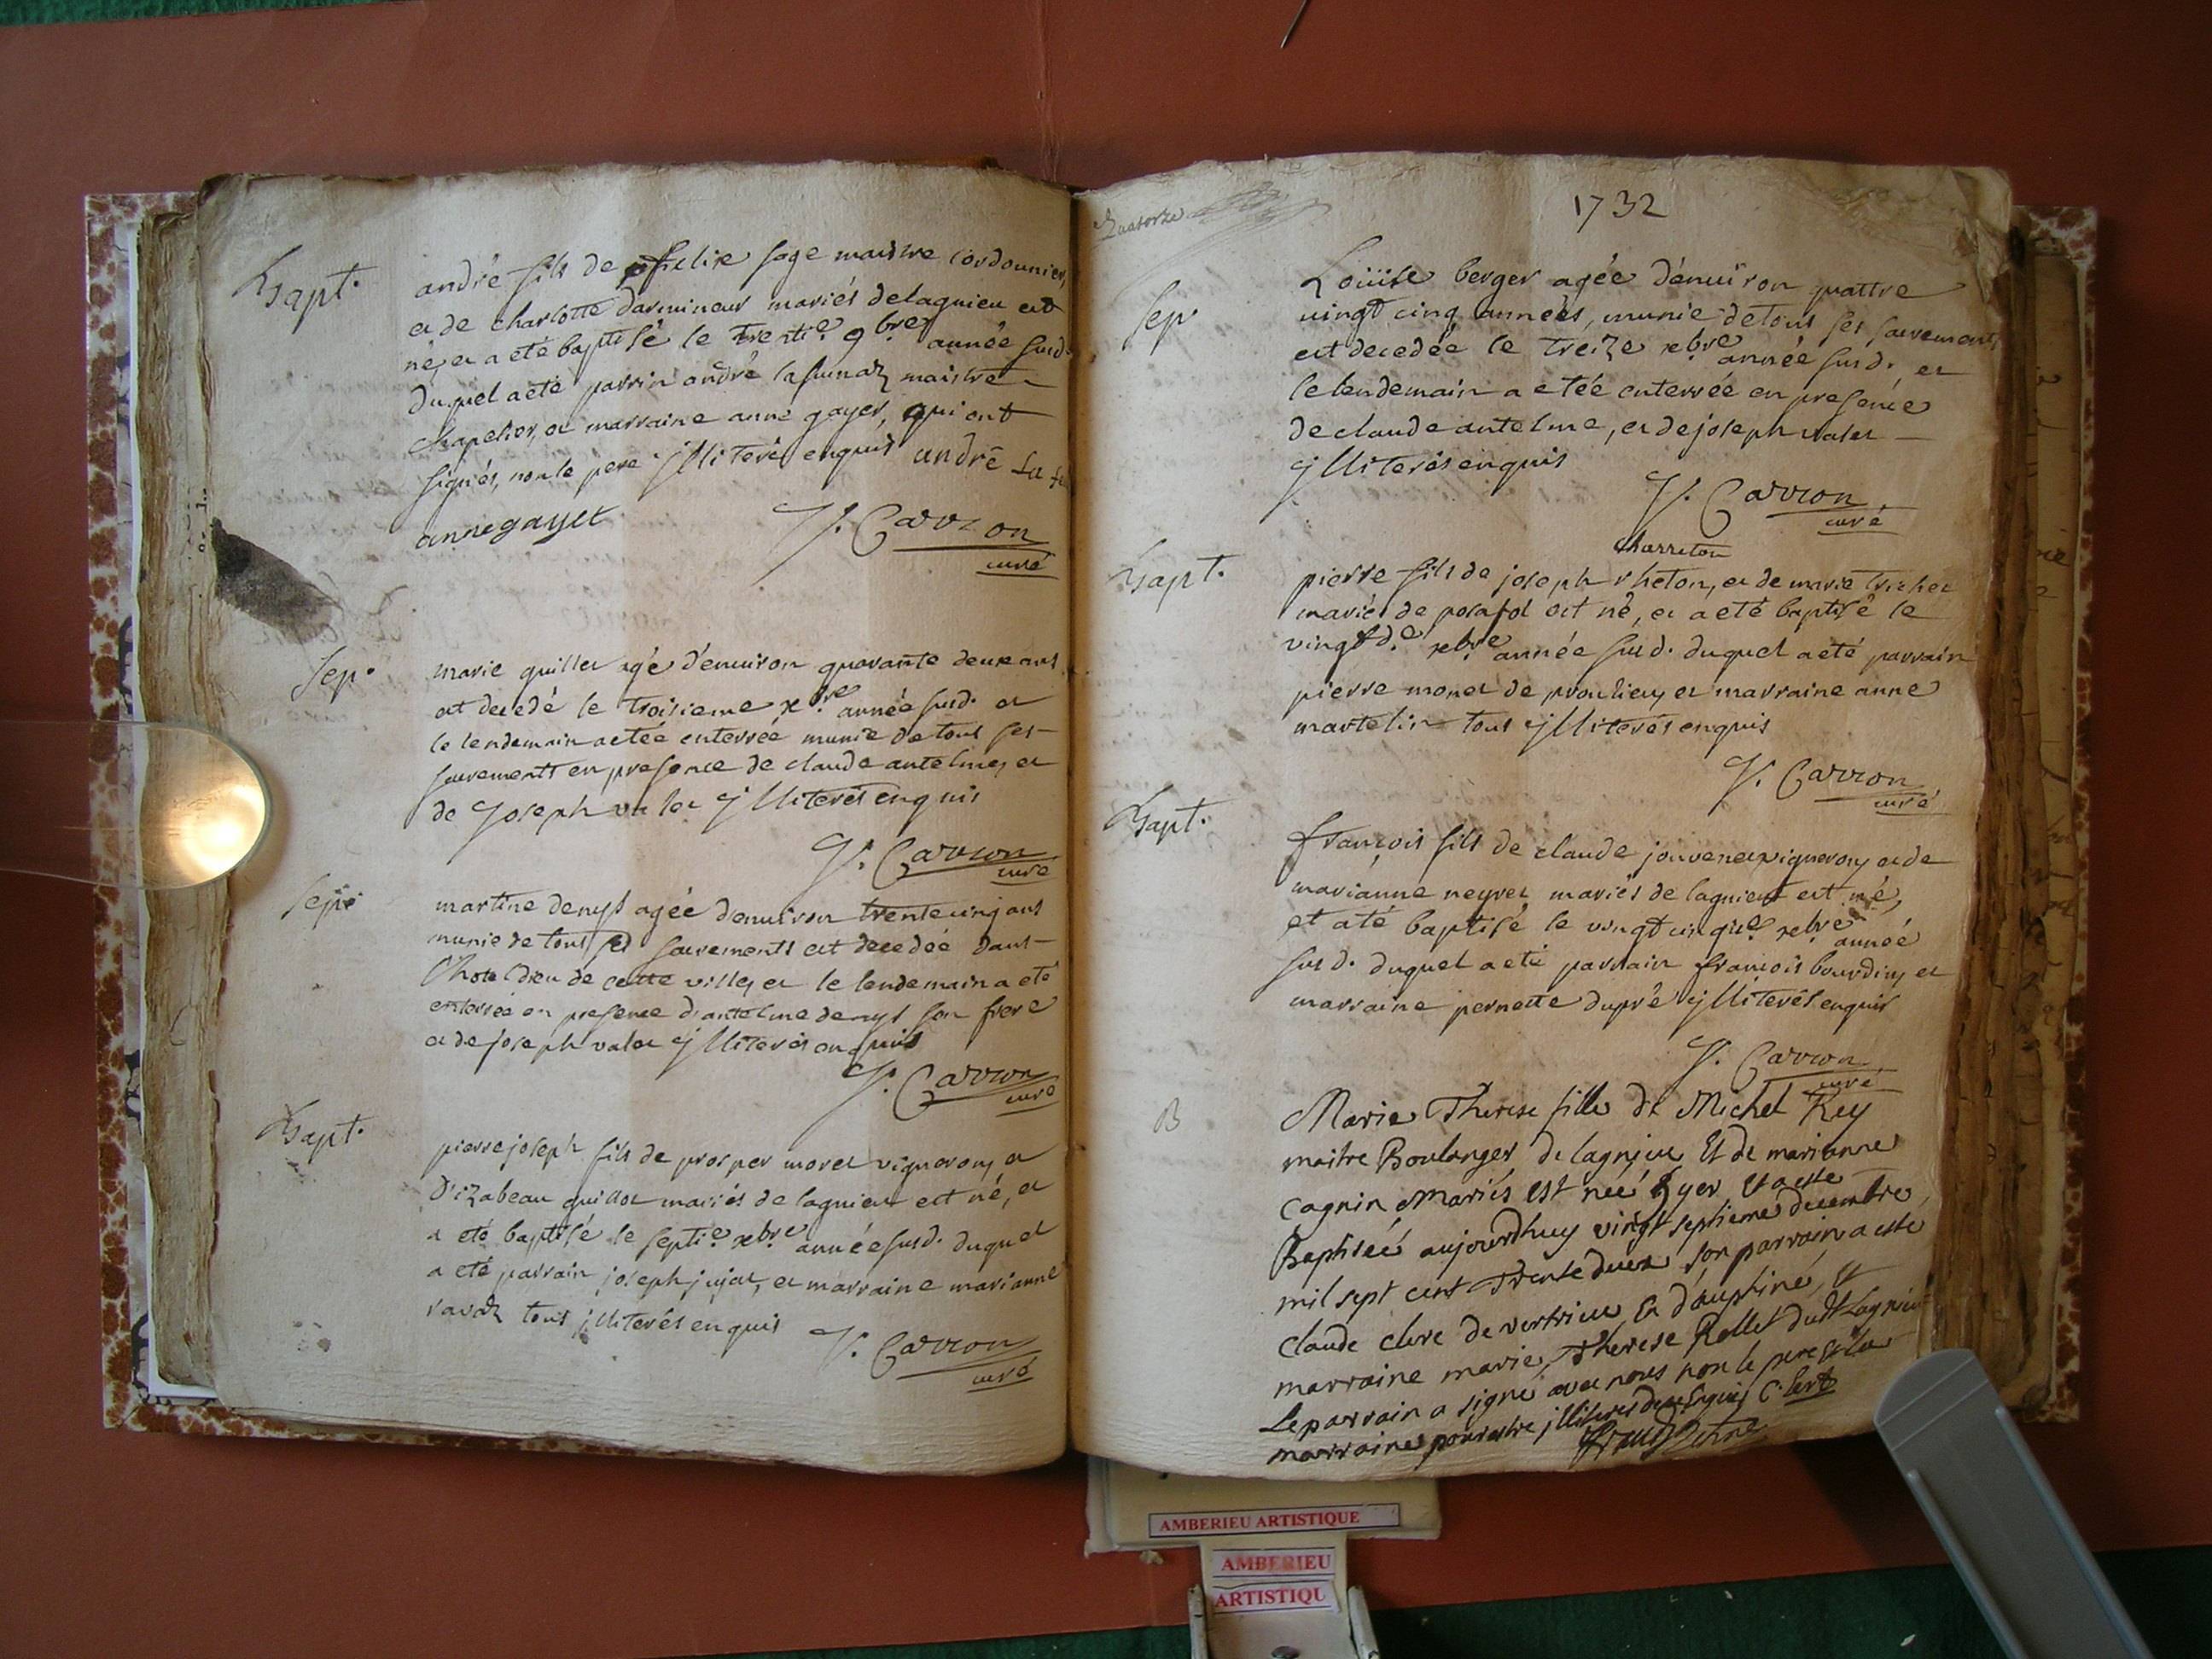 Bapt.
andré fils de felix sage maistre cordonnier,
et de charlotte darmineur mariés de lagnieu est
né, et a eté baptisé le trenti.e 9bre. année susd.
duquel a eté parrin andré lafumaz maistre
chapelier, et marraine anne gayet, qui ont
signés, non le pere jlliterés enquis andrē La
anne gayet
J. Carron
curé
Sep.
marie guillet agé d'enuiron quarante deux ans
est decedé le troisieme xbre année susd. et
le lendemain a etée enterrée munie de tous ses
sacrements en presence de claude antelme, et
de Joseph valet jlliterés enquis
J. Carron
curé
Sep.
martine denys agée denuiron trente cinq ans
munie de tous ses sacrements est decedée dans
l'hotel dieu de cette ville, et le lendemain a eté
enterrée en presence d'antelme denys son frere
et de joseph valet jlliterés enquis
J. Carron
curé
Bapt.
pierre joseph fils de prosper moret vigneron, et
d'izabeau guillot mariés de lagnieu est né, et
a eté baptisé le septi.e xbre année susd. duquel
a eté parrain joseph jujat, et marraine marianne
ravaz tous jlliterés enquis
J. Carron
curé
Quatorze
1732
Sep.
Loüise berger agée d'enuiron quattre
uingt cinq années, munie de tous ses sacrements
est decedée le treize xbre année susd. et
le lendemain a etée enterrée en presence
de claude antelme, et de joseph valet
jlliterés enquis
J. Carron
curé
Charreton
Bapt.
pierre fils de joseph rheton, et de marie trichet
mariés de posafol est né, et a eté baptisé le
vingt d.e xbre année susd. duquel a eté parrain
pierre monet de proulieu, et marraine anne
martelin tous jlliterés enquis
J. Carron
curé
Bapt.
françois fils de claude jouvenet vigneron, et de
marianne neyret mariés de lagnieu est né,
et a té baptisé le vingt cinqie. xbre année
susd. duquel a eté parrain françois bourdin, et
marraine pernette dupré jlliterés enquis
J. Carron
curé
B
Marie Therese fille de Michel Rey
maitre Boulanger de lagnjeu Et de marianne
cagnin Mariés est neé hyer, et a este
Baptiseé aujourdhuy vingt septieme decembre
mil sept cent trente deux son parrain a esté
claude clere de vertrieu En dauphiné, et
marraine marie Therese Rollet dudt Lagnieu
Le parrain a signé avec nous non le pere et la
marraine pour estre jlliteres de ce Enquis C. Clert